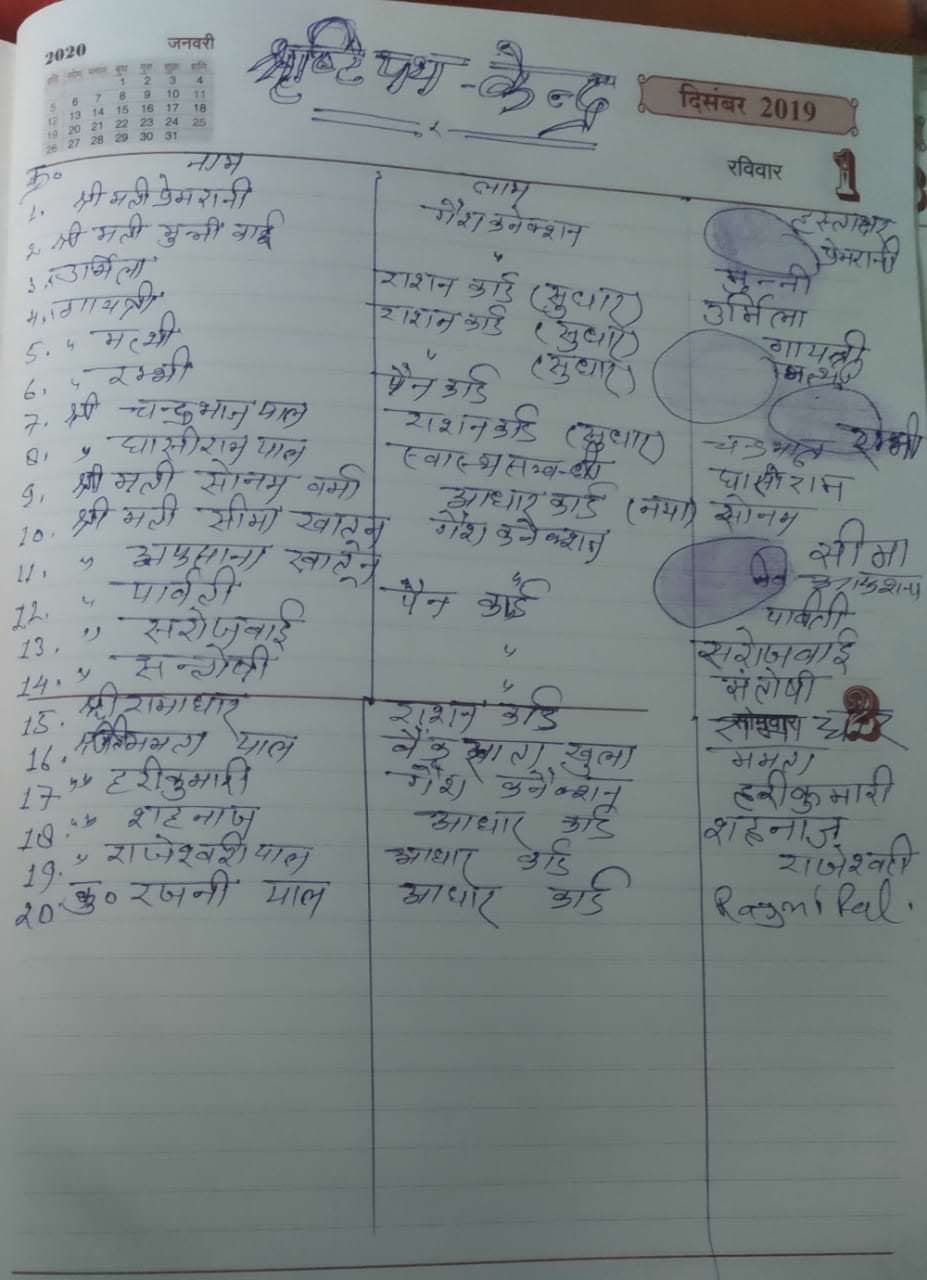 2020 जनवरी
1 2 3 4
5 6 7 8 9 10 11
12 13 14 15 16 17 18
19 20 21 22 23 24 25
26 27 28 29 30 31
दिसंबर 2019
रविवार 1
क्र० नाम लाभ हस्ताक्षर
1. श्री मती प्रेमरानी गैश कनेक्शन प्रेमरानी
2. श्री मती मुन्नी बाई " मुन्नी
3. उर्मिला राशन कार्ड (सुधार) उर्मिला
4. गायत्री राशन कार्ड (सुधार) गायत्री
5. " " (सुधार)
6. " पैन कार्ड
7. श्री चन्द्रभान पाल राशन कार्ड (सुधार) चन्द्रभान
8. " घासीराम पाल घासीराम
9. श्री मती सोनम वर्मा आधार कार्ड (नया) सोनम
10. श्री मती सीमा खातून गैश कनैक्शन सीमा
11. " अफसाना खातून "
12. " पार्वती पैन कार्ड पार्वती
13. " सरोजबाई " सरोजबाई
14. " सन्तोषी " संतोषी
15. श्री रामाधार राशन कार्ड
सोमवार 2
16. ममता पाल बैंक खाता खुला ममता
17 " हरीकुमारी गैश कनैक्शन हरीकुमारी
18. " शहनाज आधार कार्ड शहनाज
19. " राजेश्वरी पाल आधार कार्ड राजेश्वरी
20 कु० रजनी पाल आधार कार्ड Rajni Pal.